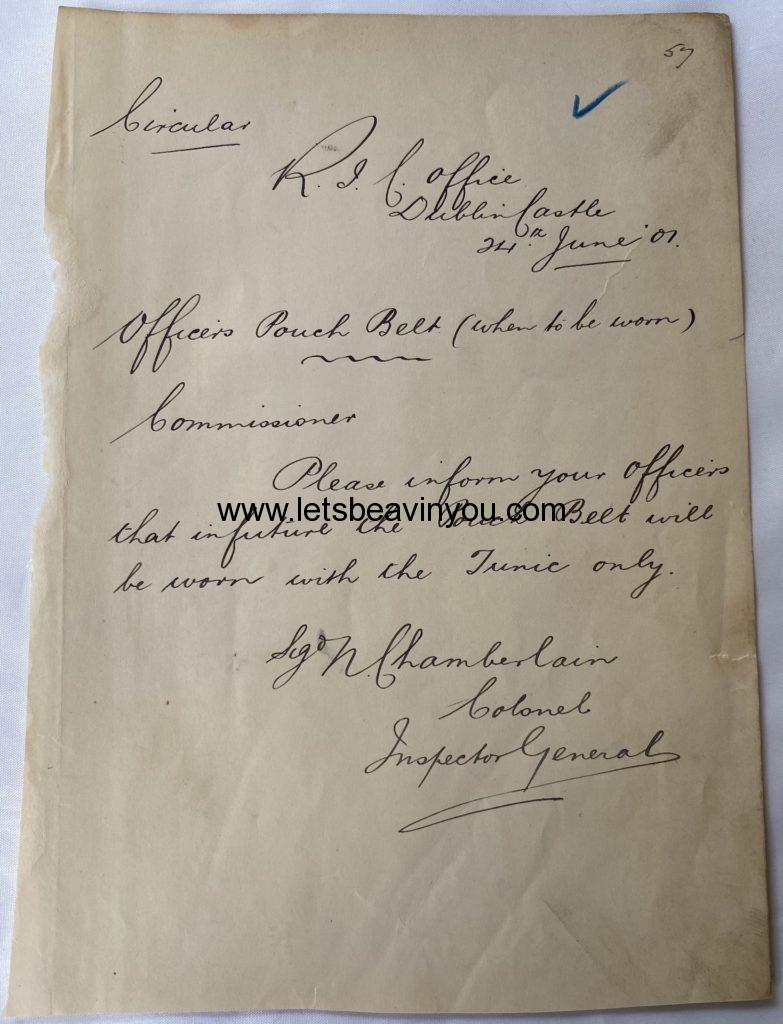 57
Circular
R. I. C. Office
Dublin Castle
24th June '01.
Officers Pouch Belt (when to be worn)
Commissioner
Please inform your Officers
www.letsbeavinyou.com
that in future the Pouch Belt will
be worn with the Tunic only.
Sigd N. Chamberlain
Colonel
Inspector General